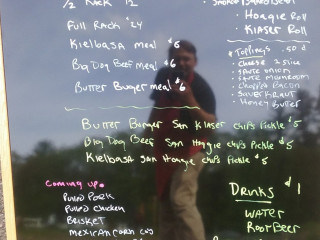 1/2 Rack 12
Full Rack $24
Kielbasa Meal $6
Big Dog Beef Meal $6
Butter Burger Meal $6
Hoagie Roll
Klaser Roll
Toppings .50¢
Cheese 2 slice
Saute onion
Saute mushroom
Chopped Bacon
Silver Kraut
Honey Butter
Butter Burger San Klaser chips Pickle $5
Big Dog Beef San Hoagie chips Pickle $5
Kielbasa San Hoagie chips Pickle $5
Coming up.
Pulled Pork
Pulled chicken
Brisket
Mexican corn
Drinks $1
Water
Root Beer